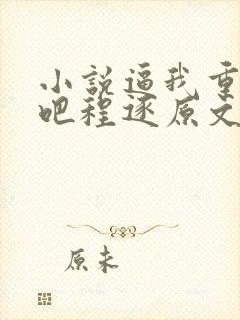 小说逼我重
吧程逐原文
原来